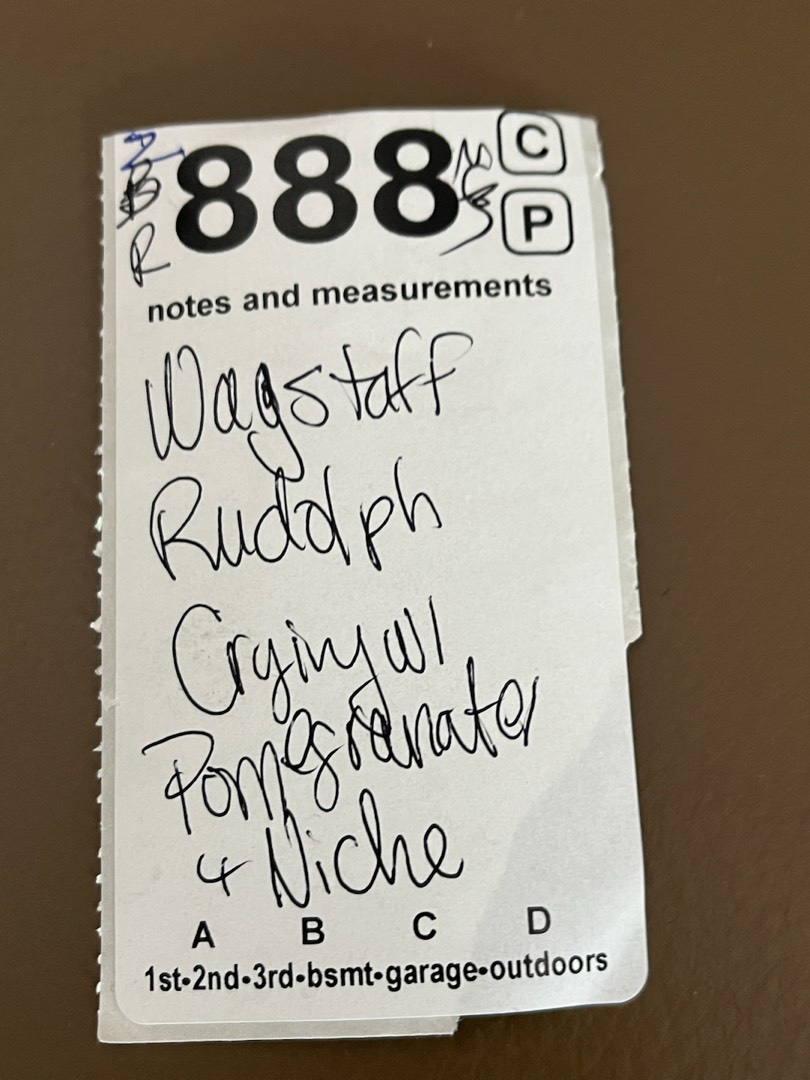 888
C
P
R
notes and measurements
Wagstaff
Rudolph
Crying w/
Pomegranate
& Niche
A B C D
1st•2nd•3rd•bsmt•garage•outdoors